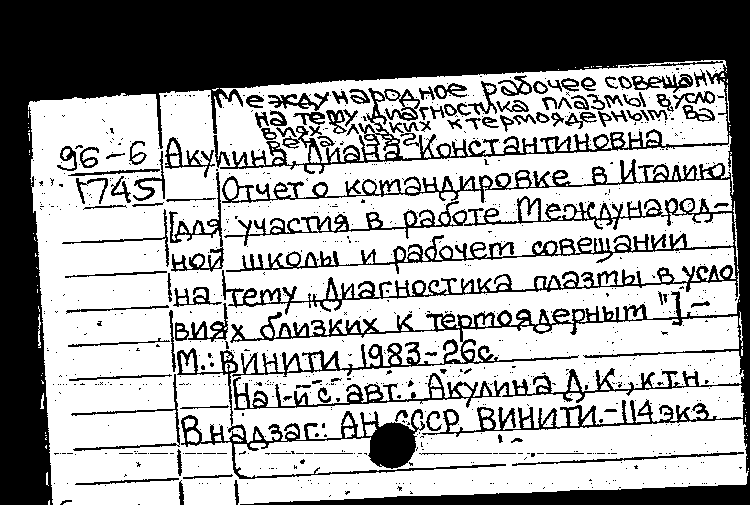 Международное рабочее совещание
на тему „Диагностика плазмы в усло-
виях близких к термоядерным. Ва-
рена, 1982
96-6
1745
Акулина, Диана Константиновна.
Отчет о командировке в Италию
[для участия в работе Международ-
ной школы и рабочем совещании
на тему „Диагностика плазмы в усло
виях близких к термоядерным"].–
М.: ВИНИТИ, 1983.-26с.
На 1-й с. авт.: Акулина Д.К., к.т.н.
В надзаг.: АН СССР, ВИНИТИ.-114 экз.